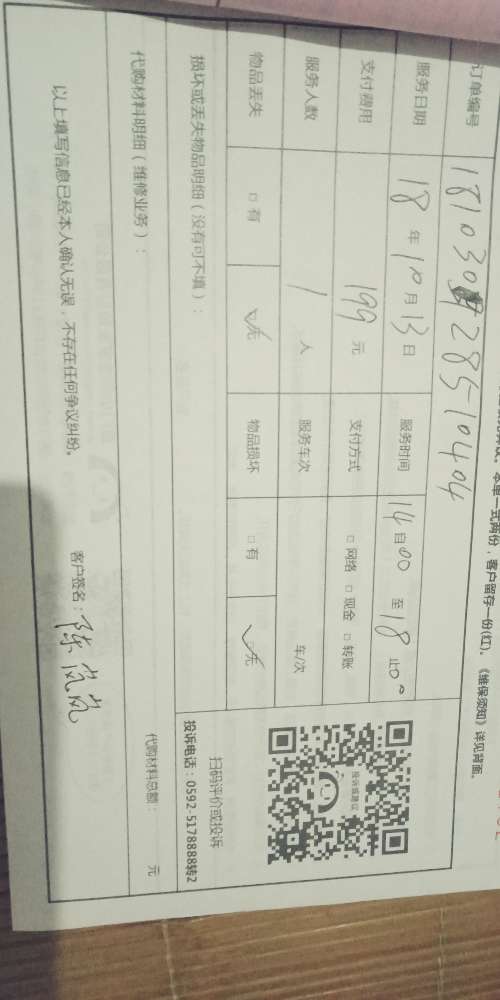 本单一式两份，客户留存一份(红)。《维保须知》详见背面。
订单编号
服务日期 18 年 10 月 13 日 服务时间 14 自 00 至 18 止 00
支付费用 199 元 支付方式 □ 网络 □ 现金 □ 转账
服务人数 1 人 服务车次 车/次
物品丢失 □ 有 ☑ 无 物品损坏 □ 有 ☑ 无
损坏或丢失物品明细（没有可不填）：
代购材料明细（维修业务）：
代购材料总额： 元
以上填写信息已经本人确认无误，不存在任何争议纠纷。
客户签名：陈岚岚
投诉或建议
扫码评价或投诉
投诉电话：0592-5178888转2